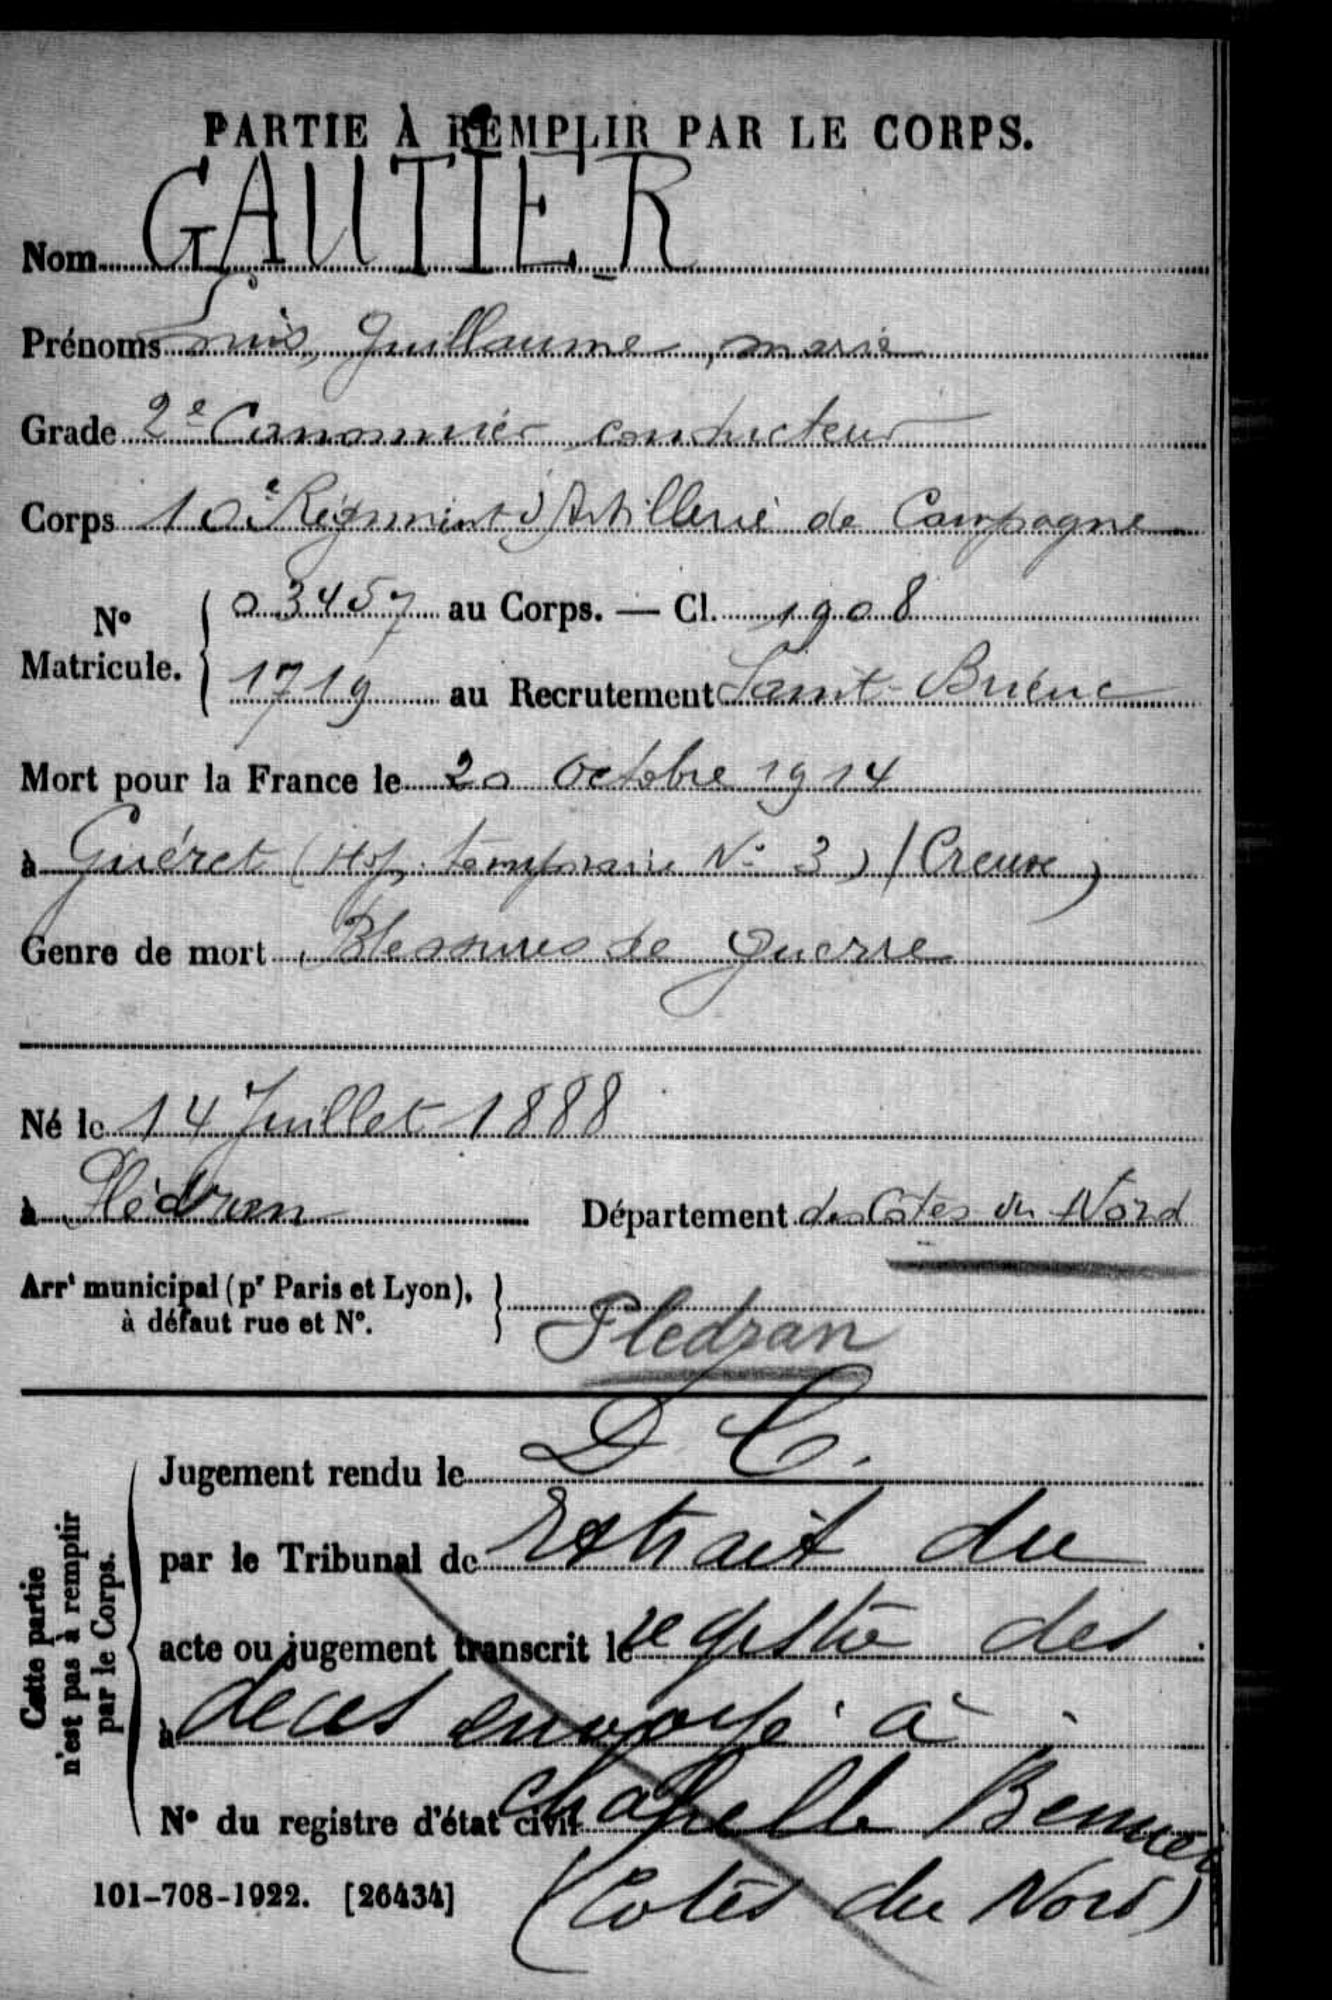 PARTIE À REMPLIR PAR LE CORPS.
Nom GAUTIER
Prénoms Louis, Guillaume, marie
Grade 2e Canonnier conducteur
Corps 10e Régiment d'Artillerie de Campagne
No Matricule. { 03457 au Corps. — Cl. 1908
1719 au Recrutement Saint-Brieuc
Mort pour la France le 20 Octobre 1914
à Guéret (Hop. temporaire No 3) (Creuse)
Genre de mort Blessures de guerre
Né le 14 Juillet 1888
à Plédran Département des Côtes du Nord
Arrt municipal (pr Paris et Lyon), à défaut rue et No. } Pledran
Cette partie n'est pas à remplir par le Corps.
Jugement rendu le D C.
par le Tribunal de Extrait du
acte ou jugement transcrit le registre des
à décès envoyé à
No du registre d'état civil chapelle
(Cotes du Nord)
101-708-1922. [26434]